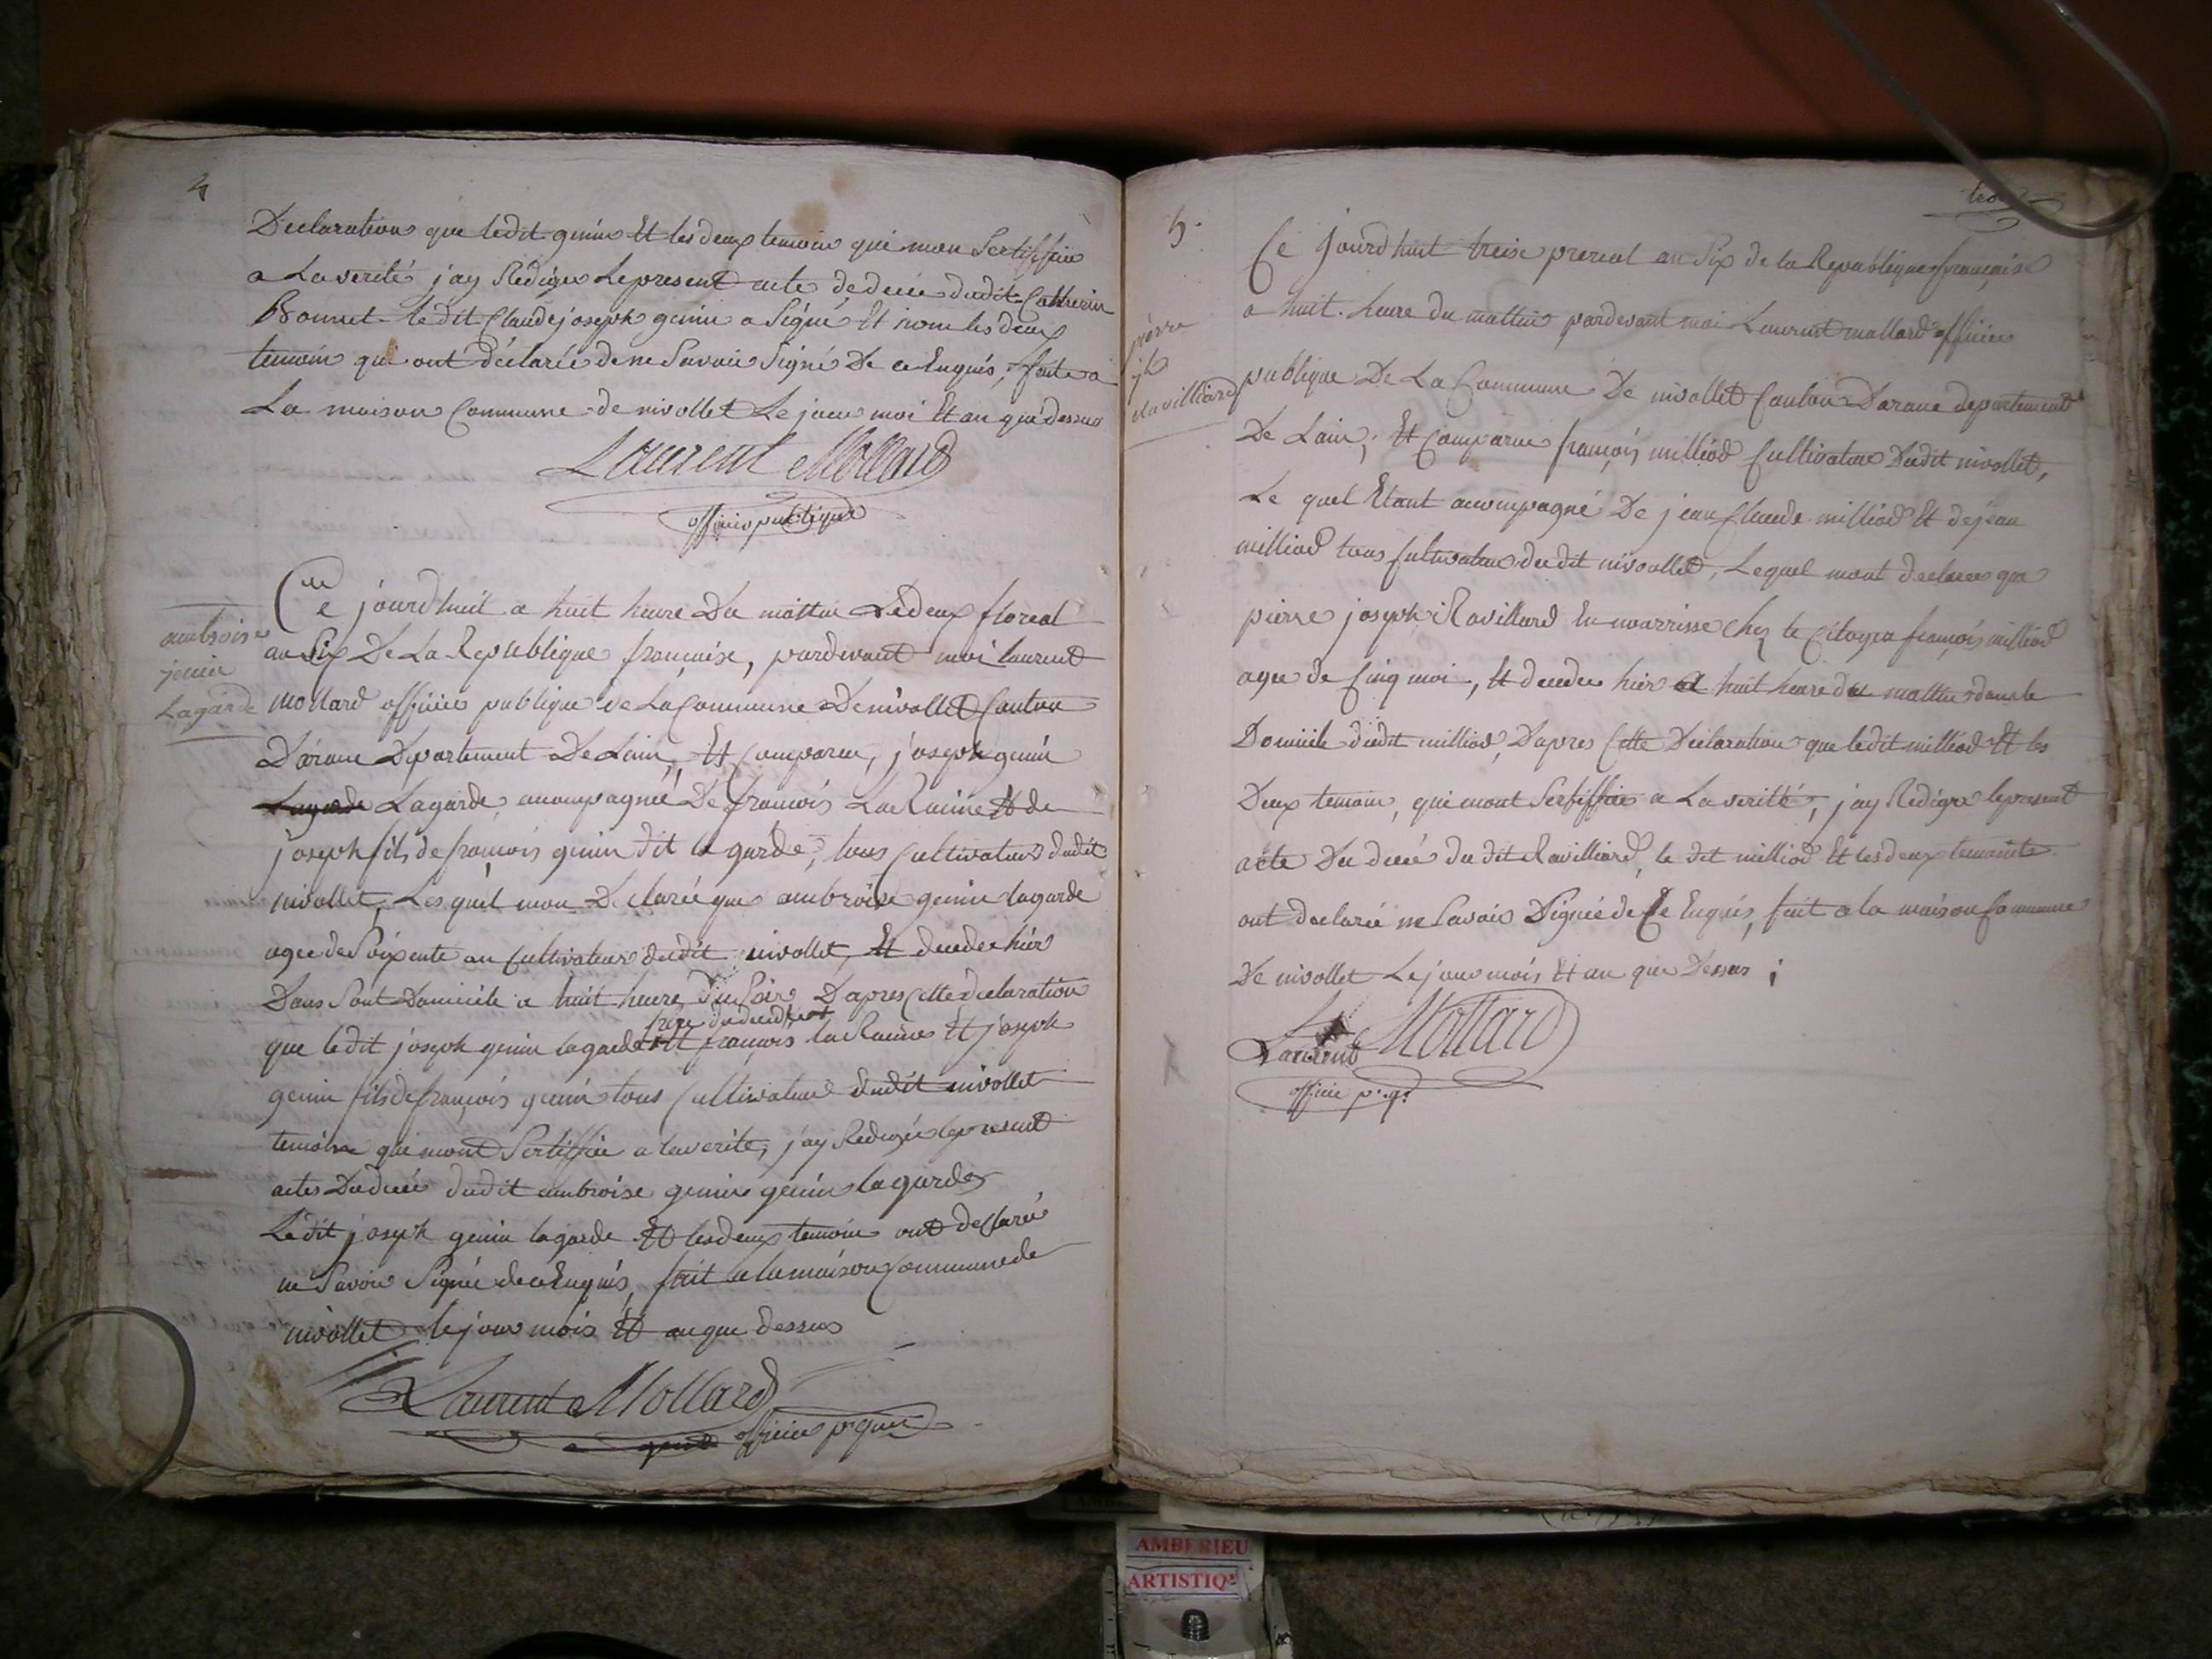 4
Declaration que ledit genin Et les deux temoin qui mon Sertiffiée
a La verité j'ay Rediger Le present acte de decée dudit Catherin
Bonnet ledit Claude joseph genin a Signé Et nom les deux
temoin qui ont déclarée de ne Savoir Signé De ce Enquis, faite a
La maison Commune de nivollet Le jour moi Et an que dessus
Laurent Mollard
officier publique
ambroise
jenin
Lagarde
Ce jourdhuit a huit heure Du mattin Le deux floreal
an Six De La Republique française, pardevant moi laurent
mollard officier publique de La Commune De nivollet Canton
D'arane Departement De Lain, Et Comparu, joseph genin
Lagarde Lagarde, accompagnée De françois La Racine Et de
joseph fils de françois genin dit la garde, tous Cultivateur dudit
nivollet, Lesquel mon Declarée que ambroise genin lagarde
agee de Soixente an Cultivateur dudit nivollet, Et decedee hier
Dans Sont Domicile a huit heure du Soir D'apres Cette declaration
frere du decedé
que ledit joseph genin lagarde Et françois la Racine Et joseph
genin fils de françois genin tous Cultivateur dudit nivollet
temoin qui mont Sertiffiée a la verité, j'ay Redigée le present
actes Du decée dudit ambroise genin genin lagarde
Ledit joseph genin lagarde Et les deux temoin ont declarée
ne Savoir Signée de ce Enquis, fait a la maison Commune de
nivollet le jour mois Et an que dessus
Laurent Mollard
officier pque
5.
pierre
jh
Ravilliard
Ce jourdhuit treise prereal an Six de la Republique française
a huit heure du mattin pardevant moi Laurent mallard officier
publique De La Commune De nivollet Canton D'arane departement
De Lain, Et Comparu françois milliod Cultivateur Dudit nivollet,
Le quel Etant accompagné De jean Claude milliod Et de jean
milliod tous Cultivateur dudit nivollet, Lequel mont declaree que
pierre joseph Ravillard En nourrisse Chez le Citoyen françois milliod
agee de Cinq moi, Et decedee hier a huit heure du mattin dans le
Domicile dudit milliod, D'apres Cette Declaration que ledit milliod Et les
Deux temoin, qui mont Sertiffiée a La verité, j'ay Rediger le present
acte Du decée du dit Ravilliard, le dit milliod Et les deux temoint
ont declarée ne Savoir Signée de Ce Enquis, fait a la maison Commune
De nivollet Le jour mois Et an que Dessus ;
Laurent Mollard
officie p.q.
AMBERIEU
ARTISTIQ